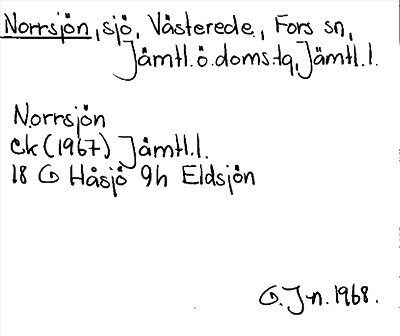 Norrsjön, sjö, Västerede, Fors sn,
Jämtl.ö.doms.tg, Jämtl.l.
Norrsjön
Ek (1967) Jämtl.l.
18 G Håsjö 9h Eldsjön
G. J-n. 1968.